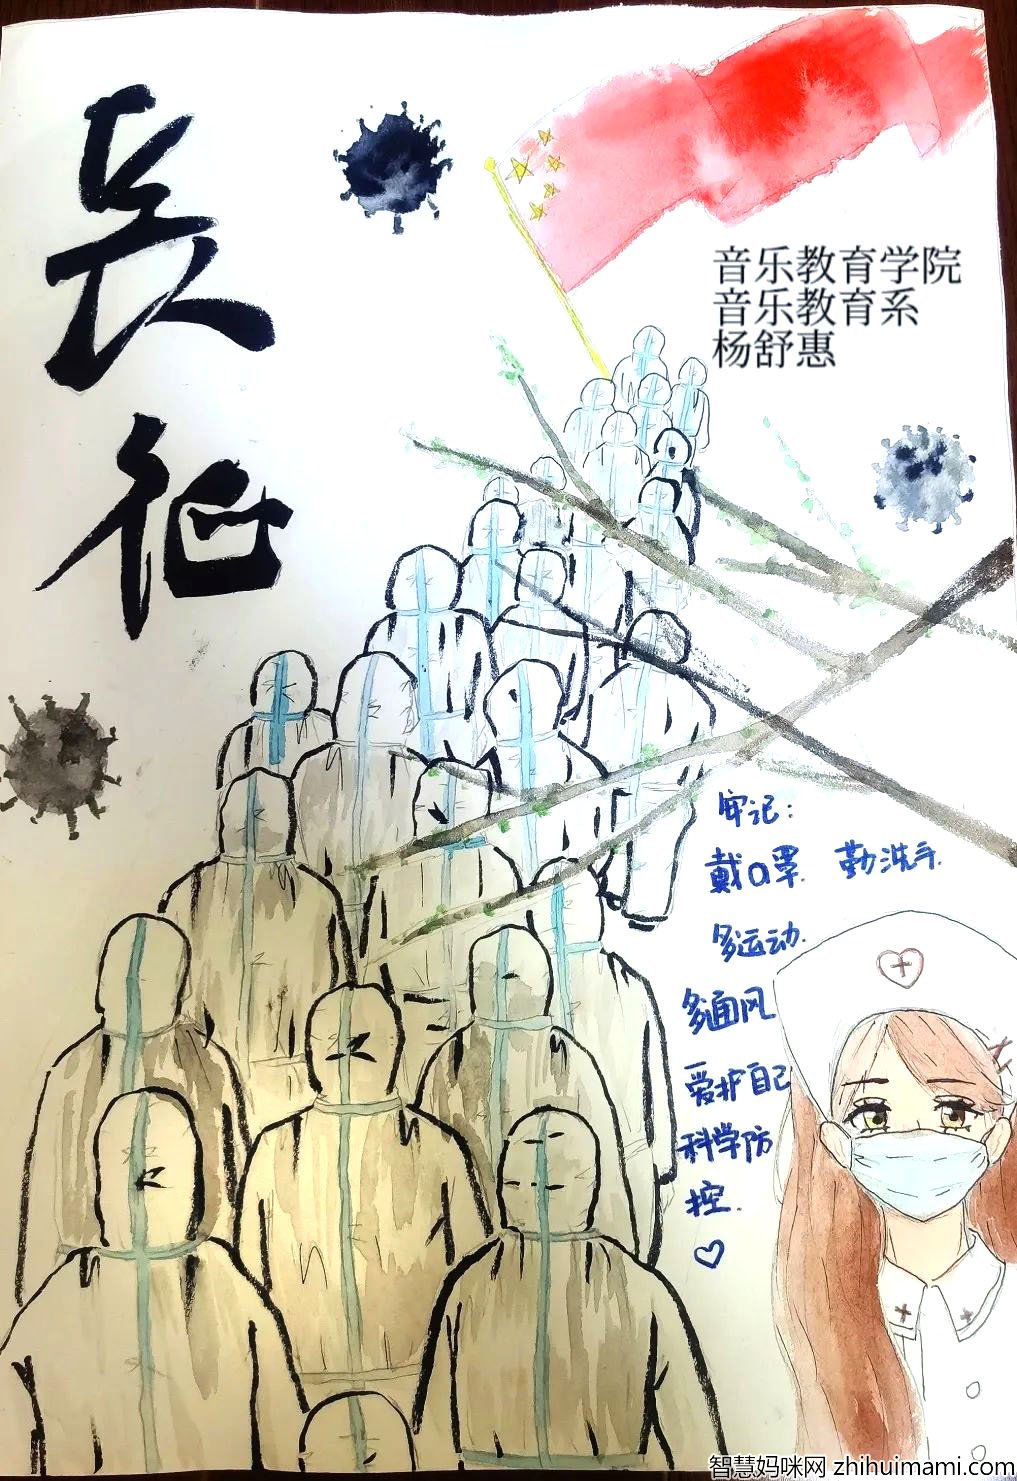 长征
音乐教育学院
音乐教育系
杨舒惠
牢记:
戴口罩. 勤洗手.
多运动.
多通风
爱护自己
科学防
控.
智慧妈咪网 zhihuimami.com